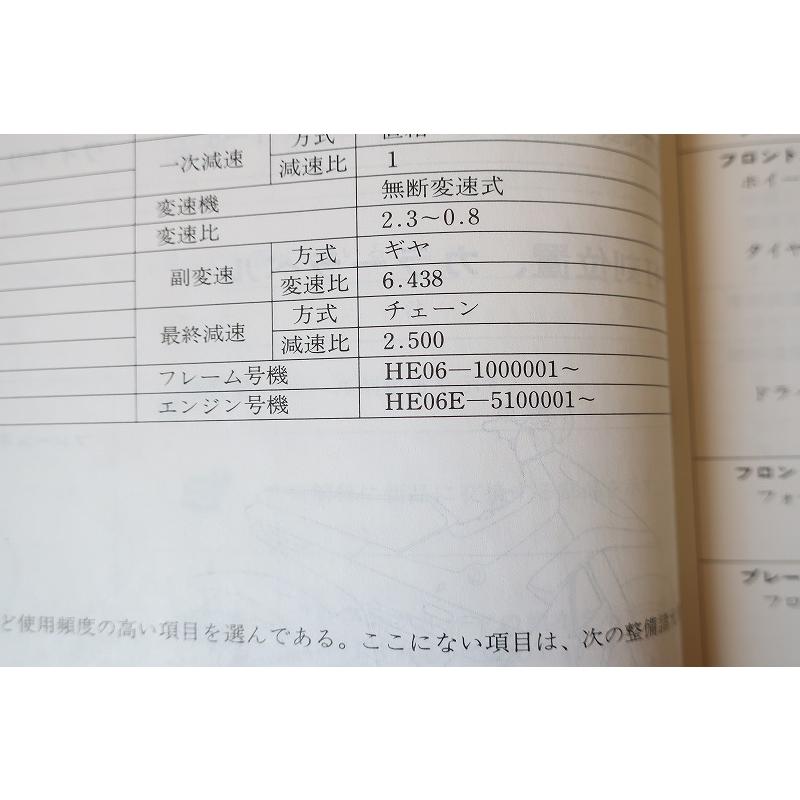 方式
一次減速
減速比 1
変速機 無断変速式
変速比 2.3〜0.8
副変速
方式 ギヤ
変速比 6.438
最終減速
方式 チェーン
減速比 2.500
フレーム号機 HE06—1000001〜
エンジン号機 HE06E—5100001〜
ど使用頻度の高い項目を選んである。ここにない項目は、次の整備
フロント
ホイー
タイヤ
ドライ
フロン
フォ
ブレー
フロ